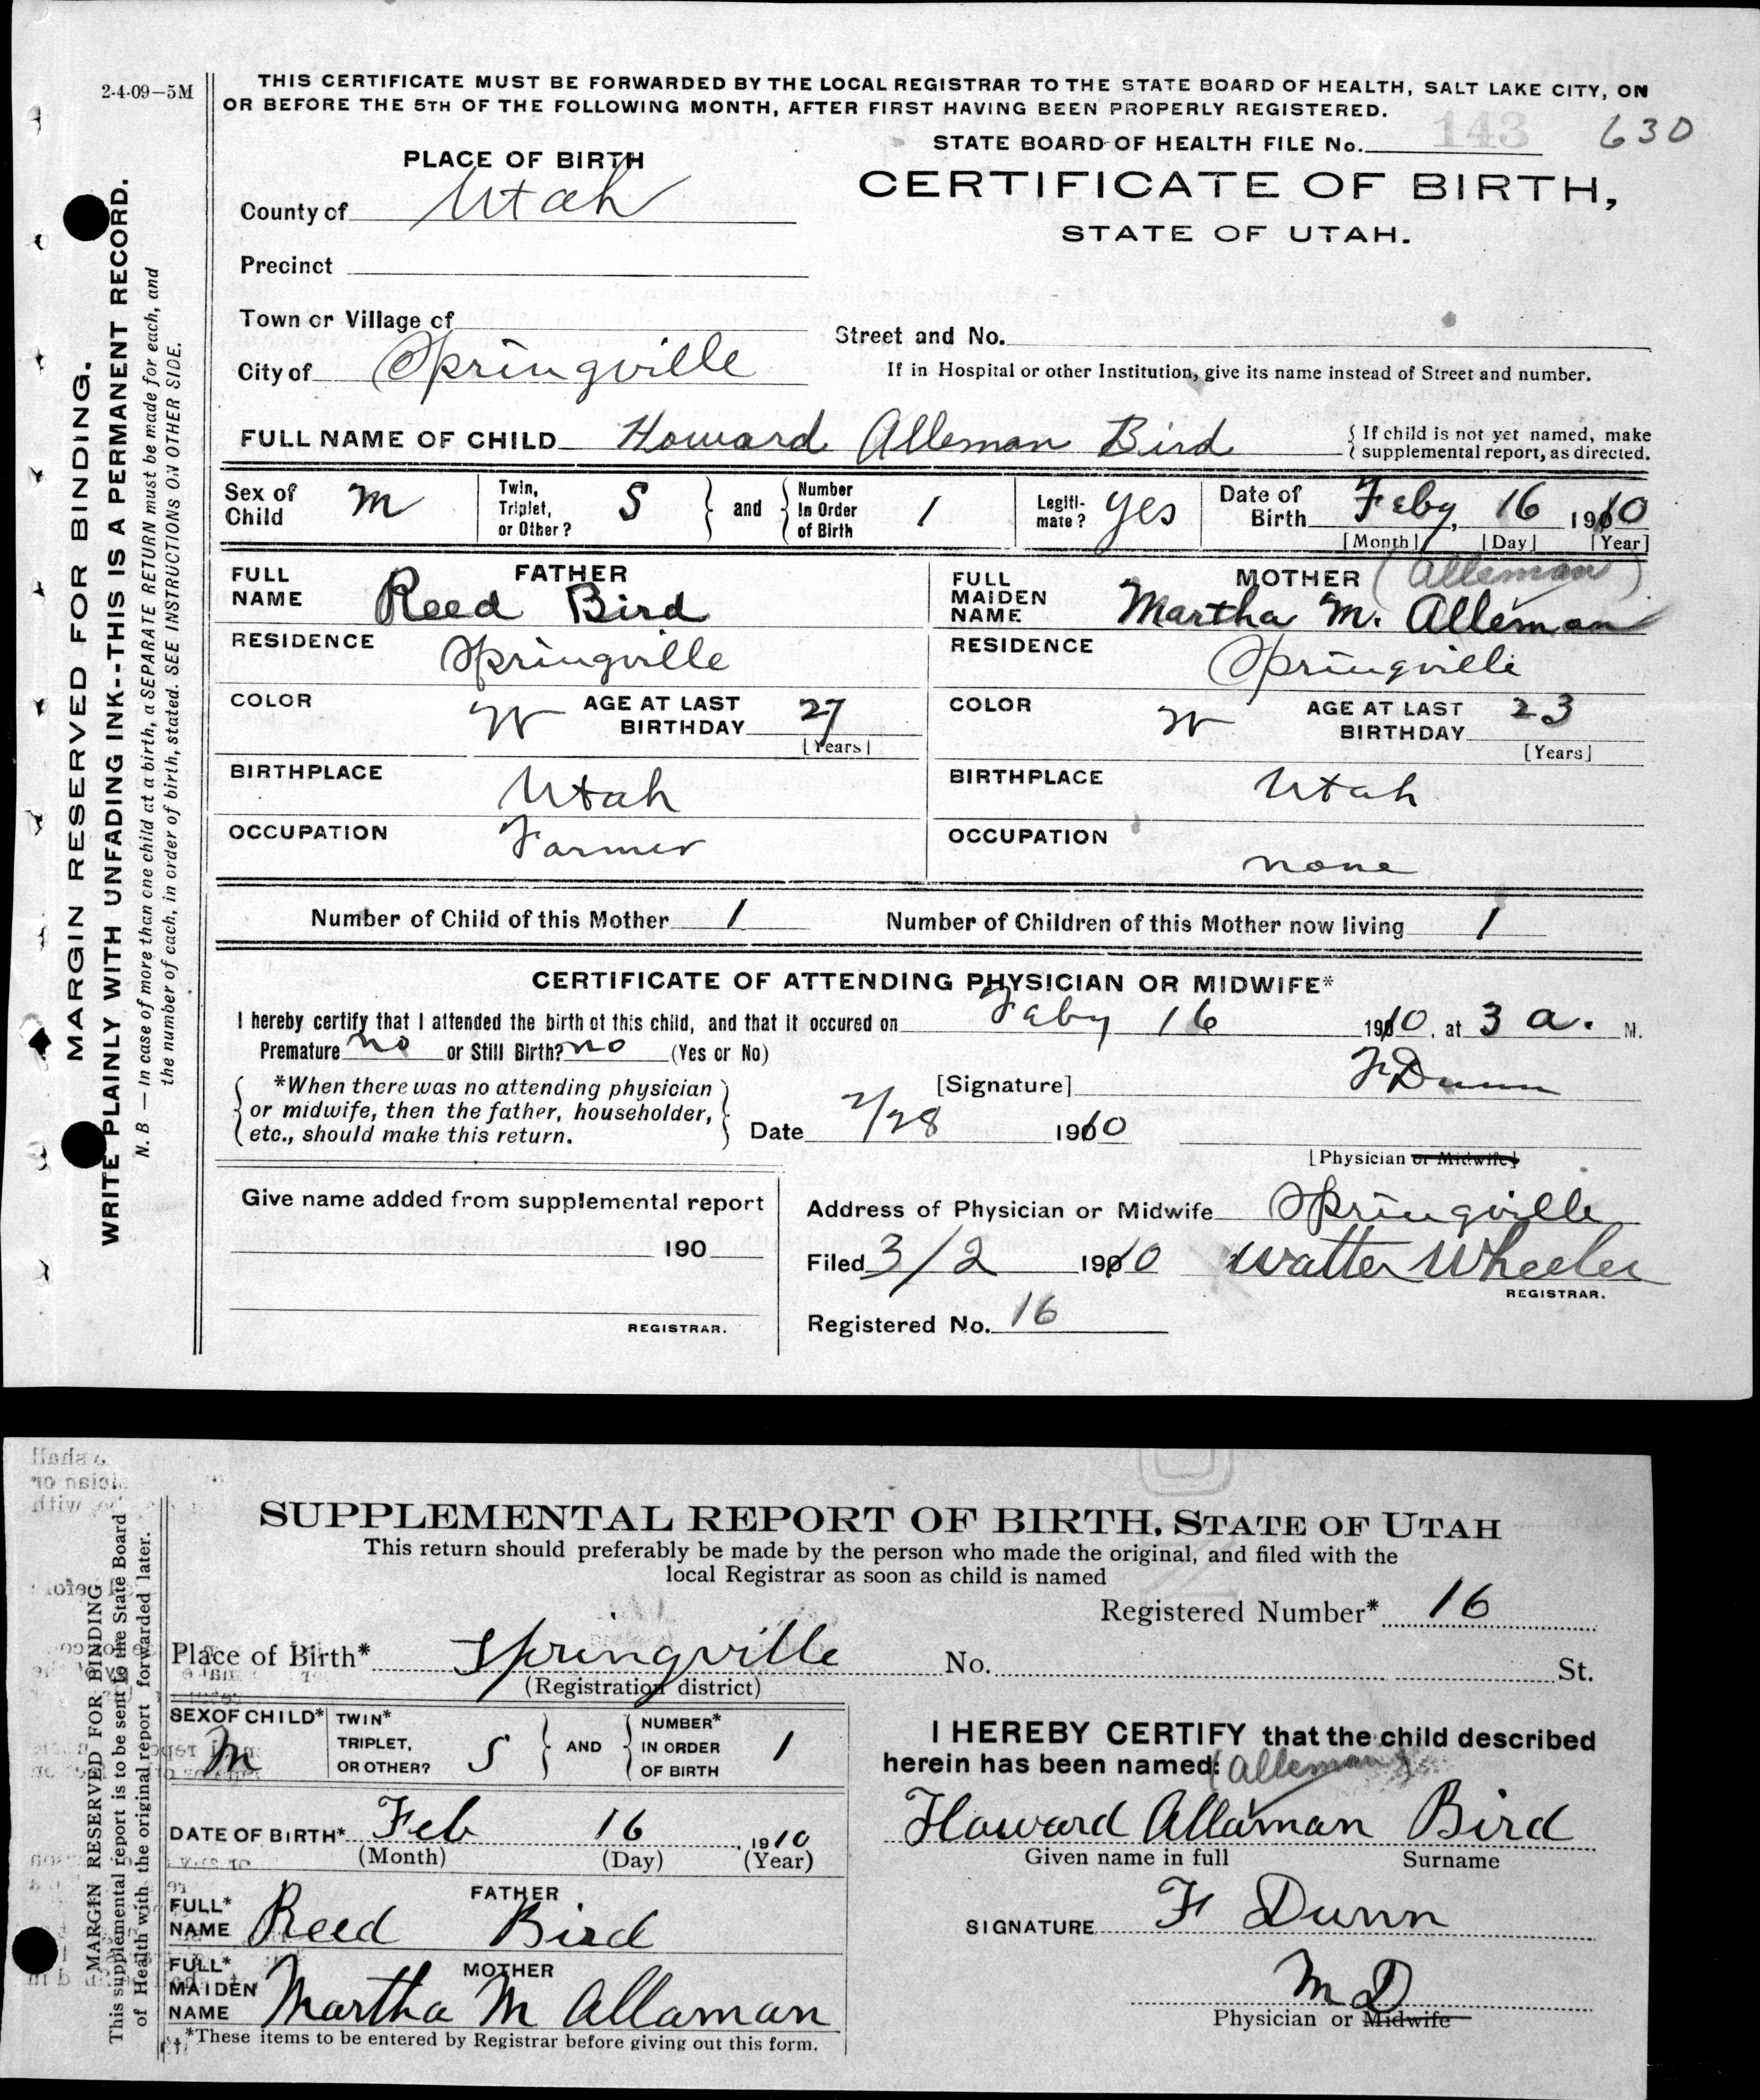 2-4-09—5M
THIS CERTIFICATE MUST BE FORWARDED BY THE LOCAL REGISTRAR TO THE STATE BOARD OF HEALTH, SALT LAKE CITY, ON
OR BEFORE THE 5TH OF THE FOLLOWING MONTH, AFTER FIRST HAVING BEEN PROPERLY REGISTERED.
STATE BOARD OF HEALTH FILE No. 143 630
CERTIFICATE OF BIRTH,
STATE OF UTAH.
PLACE OF BIRTH
County of Utah
Precinct
Town or Village of
Street and No.
City of Springville
If in Hospital or other Institution, give its name instead of Street and number.
FULL NAME OF CHILD Howard Alleman Bird
{ If child is not yet named, make
supplemental report, as directed.
Sex of Child M
Twin, Triplet, or Other? S } and { Number In Order of Birth 1
Legiti-mate? yes
Date of Birth Feby, 16 1910
[Month] [Day] [Year]
FATHER
FULL NAME Reed Bird
RESIDENCE Springville
COLOR W AGE AT LAST BIRTHDAY 27
[Years]
BIRTHPLACE Utah
OCCUPATION Farmer
MOTHER (Alleman)
FULL MAIDEN NAME Martha M. Alleman
RESIDENCE Springville
COLOR W AGE AT LAST BIRTHDAY 23
[Years]
BIRTHPLACE Utah
OCCUPATION none
Number of Child of this Mother 1 Number of Children of this Mother now living 1
CERTIFICATE OF ATTENDING PHYSICIAN OR MIDWIFE*
I hereby certify that I attended the birth of this child, and that it occured on Feby 16 1910, at 3 a. M.
Premature no or Still Birth? no (Yes or No)
{ *When there was no attending physician
or midwife, then the father, householder,
etc., should make this return. }
[Signature] F Dunn
Date 2/28 1910
[Physician or Midwife]
Give name added from supplemental report
190
REGISTRAR.
Address of Physician or Midwife Springville
Filed 3/2 1910 Walter Wheeler
REGISTRAR.
Registered No. 16
MARGIN RESERVED FOR BINDING.
WRITE PLAINLY WITH UNFADING INK--THIS IS A PERMANENT RECORD.
N. B — In case of more than one child at a birth, a SEPARATE RETURN must be made for each, and
the number of each, in order of birth, stated. SEE INSTRUCTIONS ON OTHER SIDE.
SUPPLEMENTAL REPORT OF BIRTH, STATE OF UTAH
This return should preferably be made by the person who made the original, and filed with the
local Registrar as soon as child is named
Registered Number* 16
Place of Birth* Springville No. St.
(Registration district)
SEX OF CHILD* M
TWIN* TRIPLET, OR OTHER? S } AND { NUMBER* IN ORDER OF BIRTH 1
DATE OF BIRTH* Feb 16, 1910
(Month) (Day) (Year)
FATHER
FULL* NAME Reed Bird
MOTHER
FULL* MAIDEN NAME Martha M Allaman
*These items to be entered by Registrar before giving out this form.
I HEREBY CERTIFY that the child described
herein has been named: (Alleman)
Howard Allaman Bird
Given name in full Surname
SIGNATURE F Dunn
M D
Physician or Midwife
MARGIN RESERVED FOR BINDING
This supplemental report is to be sent to the State Board
of Health with the original report forwarded later.